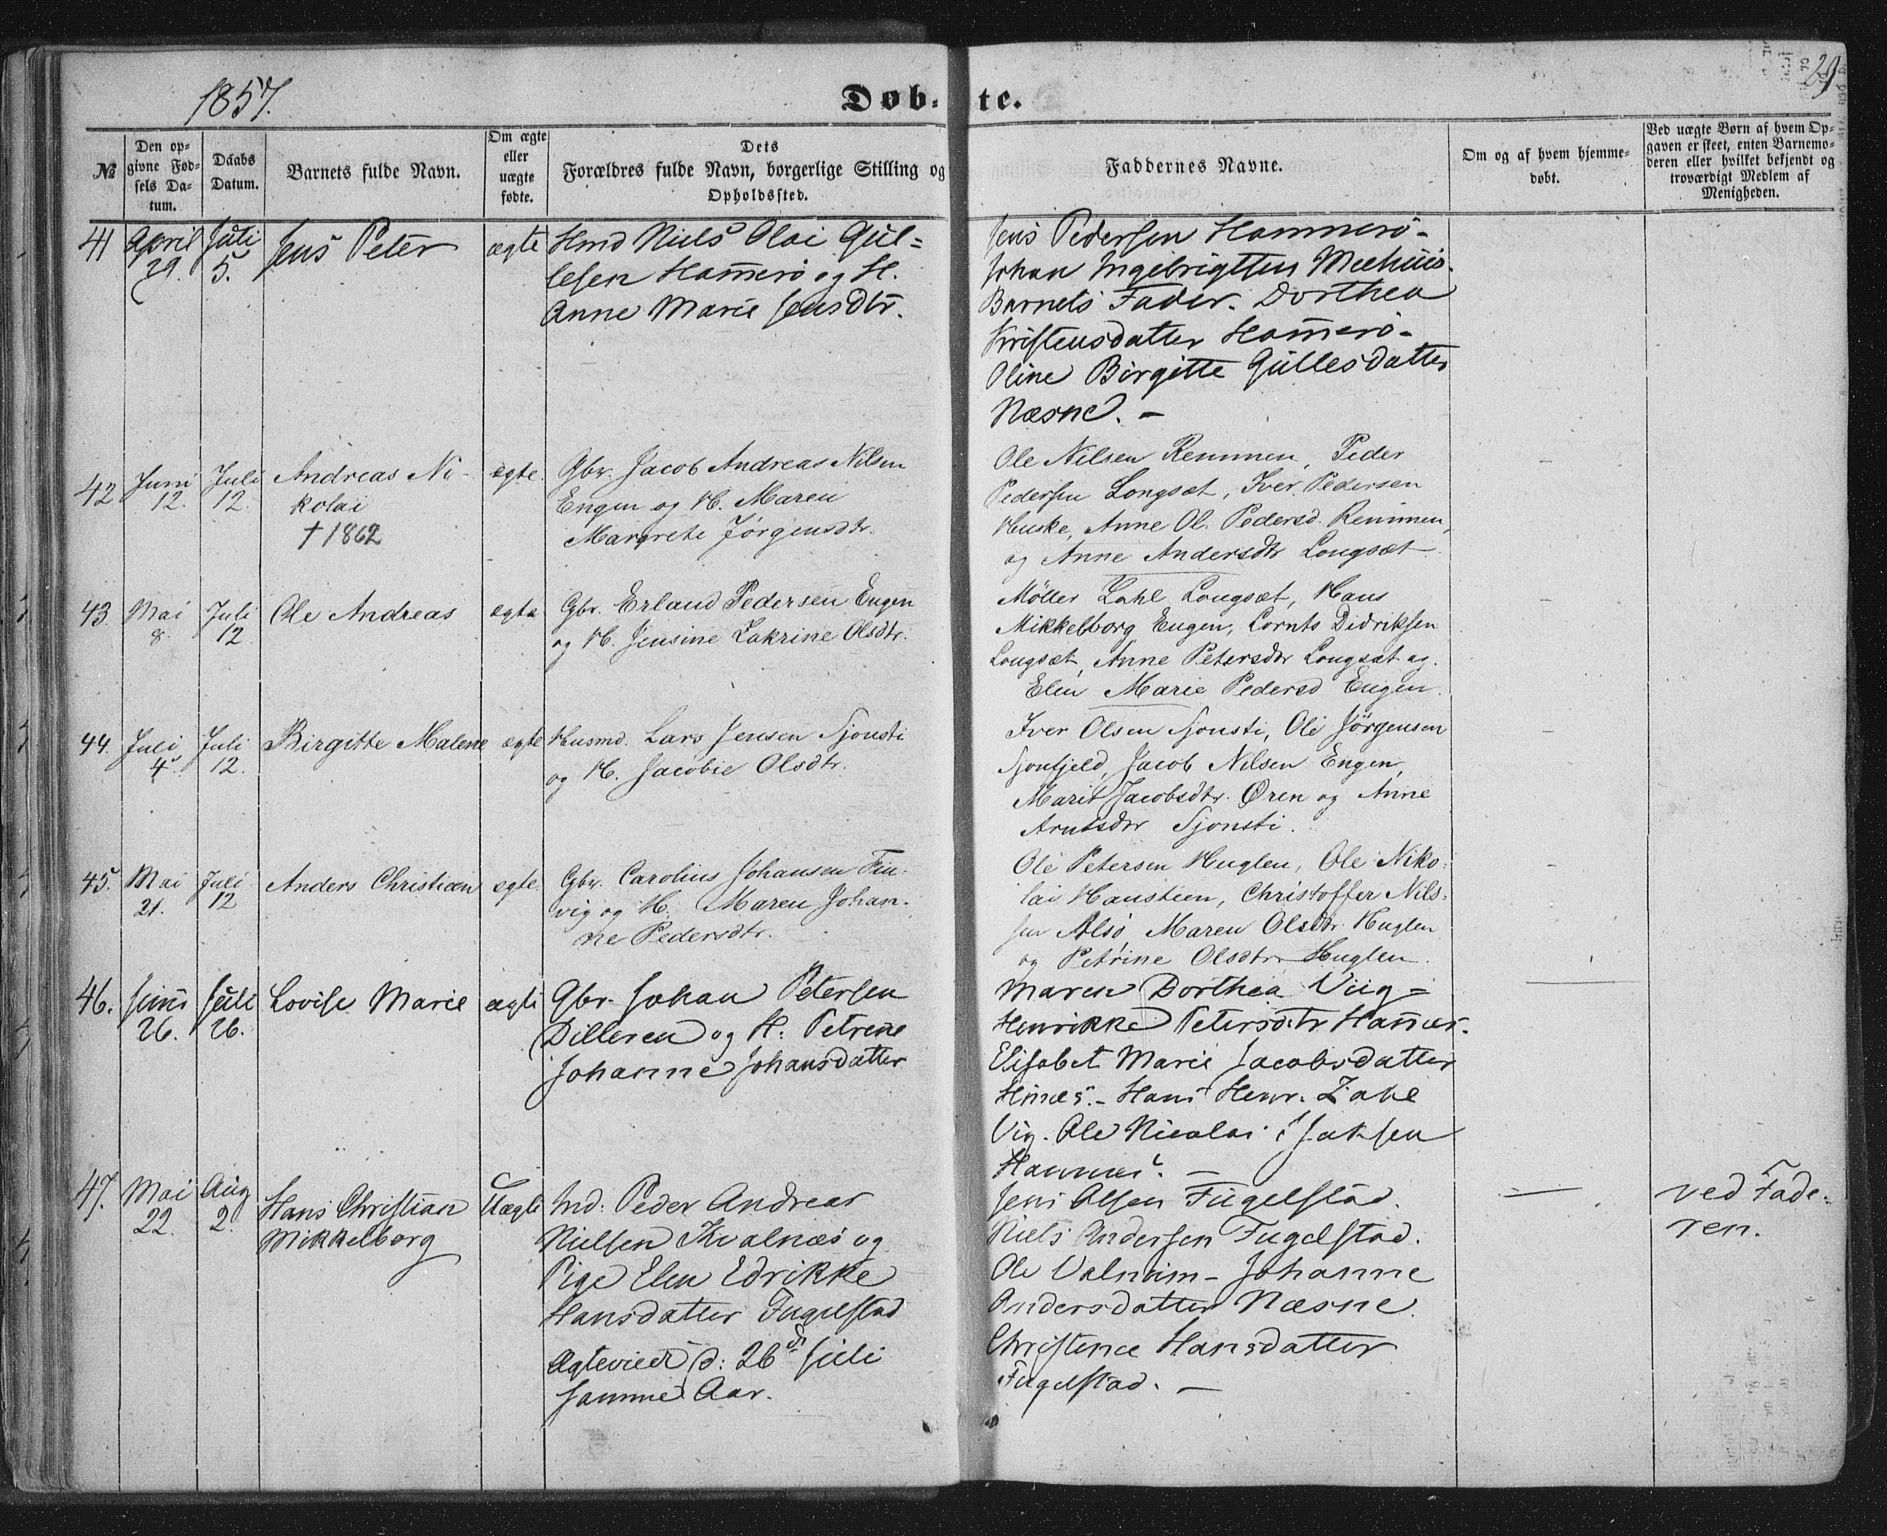 1857.
Døb- te.
29
№
Den op-
givne Fød-
sels Da-
tum.
Daabs
Datum.
Barnets fulde Navn.
Om ægte
eller
uægte
fødte.
Dets
Forældres fulde Navn, borgerlige Stilling og
Opholdssted.
Faddernes Navne.
Om og af hvem hjemme-
døbt.
Ved uægte Børn af hvem Op-
gaven er skeet, enten Barnemo-
deren eller hvilket bekjendt og
troværdigt Medlem af
Menigheden.
41
April
29.
Juli
5.
Jens Peter
ægte
Hmd Niels Olai Gul=
lesen Hammerö og H.
Anne Marie Jensdtr.
Jens Pedersen Hammerö-
Johan Ingebrigtsen Meehuus.
Barnets Fader. Dorthea
Kristensdatter Hammerö-
Oline Birgitte Gullesdatter
Næsne. -
42
Juni
12.
Juli
12.
Andreas Ni-
kolai
† 1862
ægte.
Gbr. Jacob Andreas Nilsen
Engen og H. Maren
Margrete Jörgensdtr.
Ole Nilsen Remmen, Peder
Pedersen Longsæt, Iver Pedersen
Huske, Anne Ol. Pedersd. Remmen,
og Anne Andersdtr Longsæt
43
Mai
8.
Juli
12.
Ole Andreas
ægte
Gbr. Erland Pedersen Engen
og H. Jensine Zakrine Olsdtr.
Möller Zahl Longsæt, Hans
Mikkelborg Engen, Lornts Didriksen
Longsæt, Anne Petersdtr Longsæt og
Elen Marie Pedersd Engen.
44.
Juli
4.
Juli
12.
Birgitte Malene
ægte
Husmd. Lars Jensen Sjonsti
og H. Jacobie Olsdtr.
Iver Olsen Sjonsti, Ole Jörgensen
Sjonfjeld, Jacob Nilsen Engen,
Marit Jacobsdtr. Øren og Anne
Arntsdtr Sjonsti.
45.
Mai
21.
Juli
12
Anders Christian
ægte.
Gbr. Carolius Johansen Fin-
vig og H. Maren Johan-
ne Pedersdtr.
Ole Petersen Huglen, Ole Niko-
lai Hansteen, Christoffer Nils-
sen Alsö Maren Olsdtr Huglen
og Petrine Olsdtr Huglen.
46.
Juni
26.
Juli
26.
Lovise Marie
ægte
Gbr. Johan Petersen
Dilleren og H: Petrene
Johanne Johansdatter
Maren Dorthea Viig -
Henrikke Petersdtr
Elisabet Marie Jacobsdatter
Hans Henr. Zahl
Vig. Ole Nicolai Isaksen
47.
Mai
22.
Aug
2.
Hans Christian
Mikkelborg
Uægte
Ind: Peder Andreas
Nielsen Kvalnæs og
Pige Elen Edrikke
Hansdatter Fugelstad
Ægteviet d: 26de Juli
samme Aar.
Jens Olsen Fugelstad.
Niels Andersen Fugelstad.
Ole Valnæim - Johanne
Andersdatter Næsne.
Christence Hansdatter
Fugelstad. -
ved Fade-
ren.